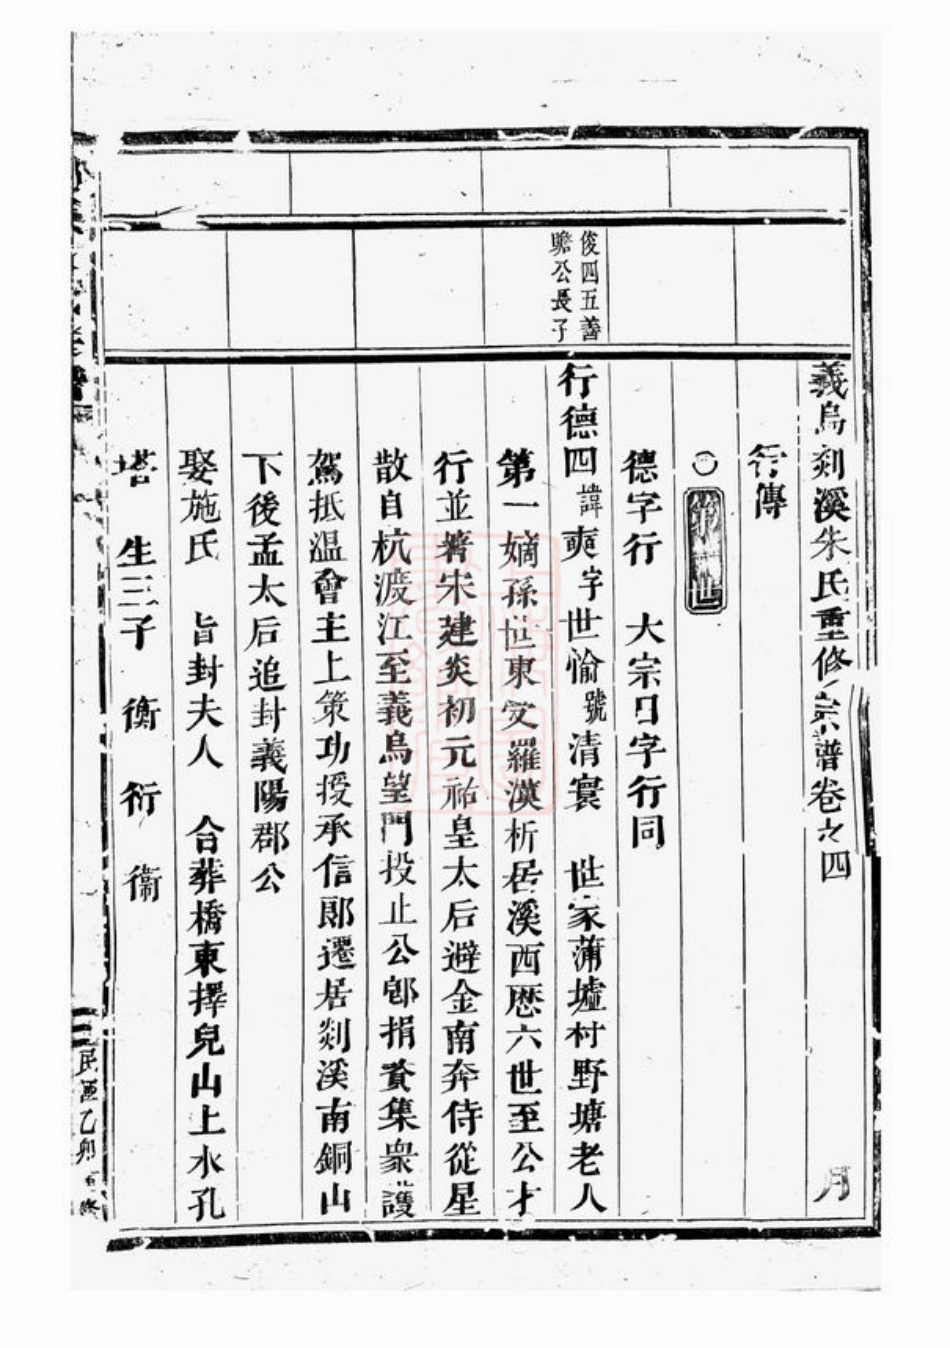 義烏剡溪朱氏重修宗譜卷之四 月
行傳
世
德字行 大宗日字行同
俊四五善
贍公長子
行德四 諱奭 字世愉 號清寰 世家蒲墟村野塘老人
第一嫡孫世東文羅漢析居溪西歴六世至公才
行並著宋建炎初元祐皇太后避金南奔侍從星
散自杭渡江至義烏望門投止公邮捐資集衆護
駕抵溫會主上策功授承信郎遷居剡溪南銅山
下後孟太后追封義陽郡公
娶施氏 旨封夫人 合葬橋東擇兒山上水孔
塔 生三子 衡 衍 衞
民國乙卯重修